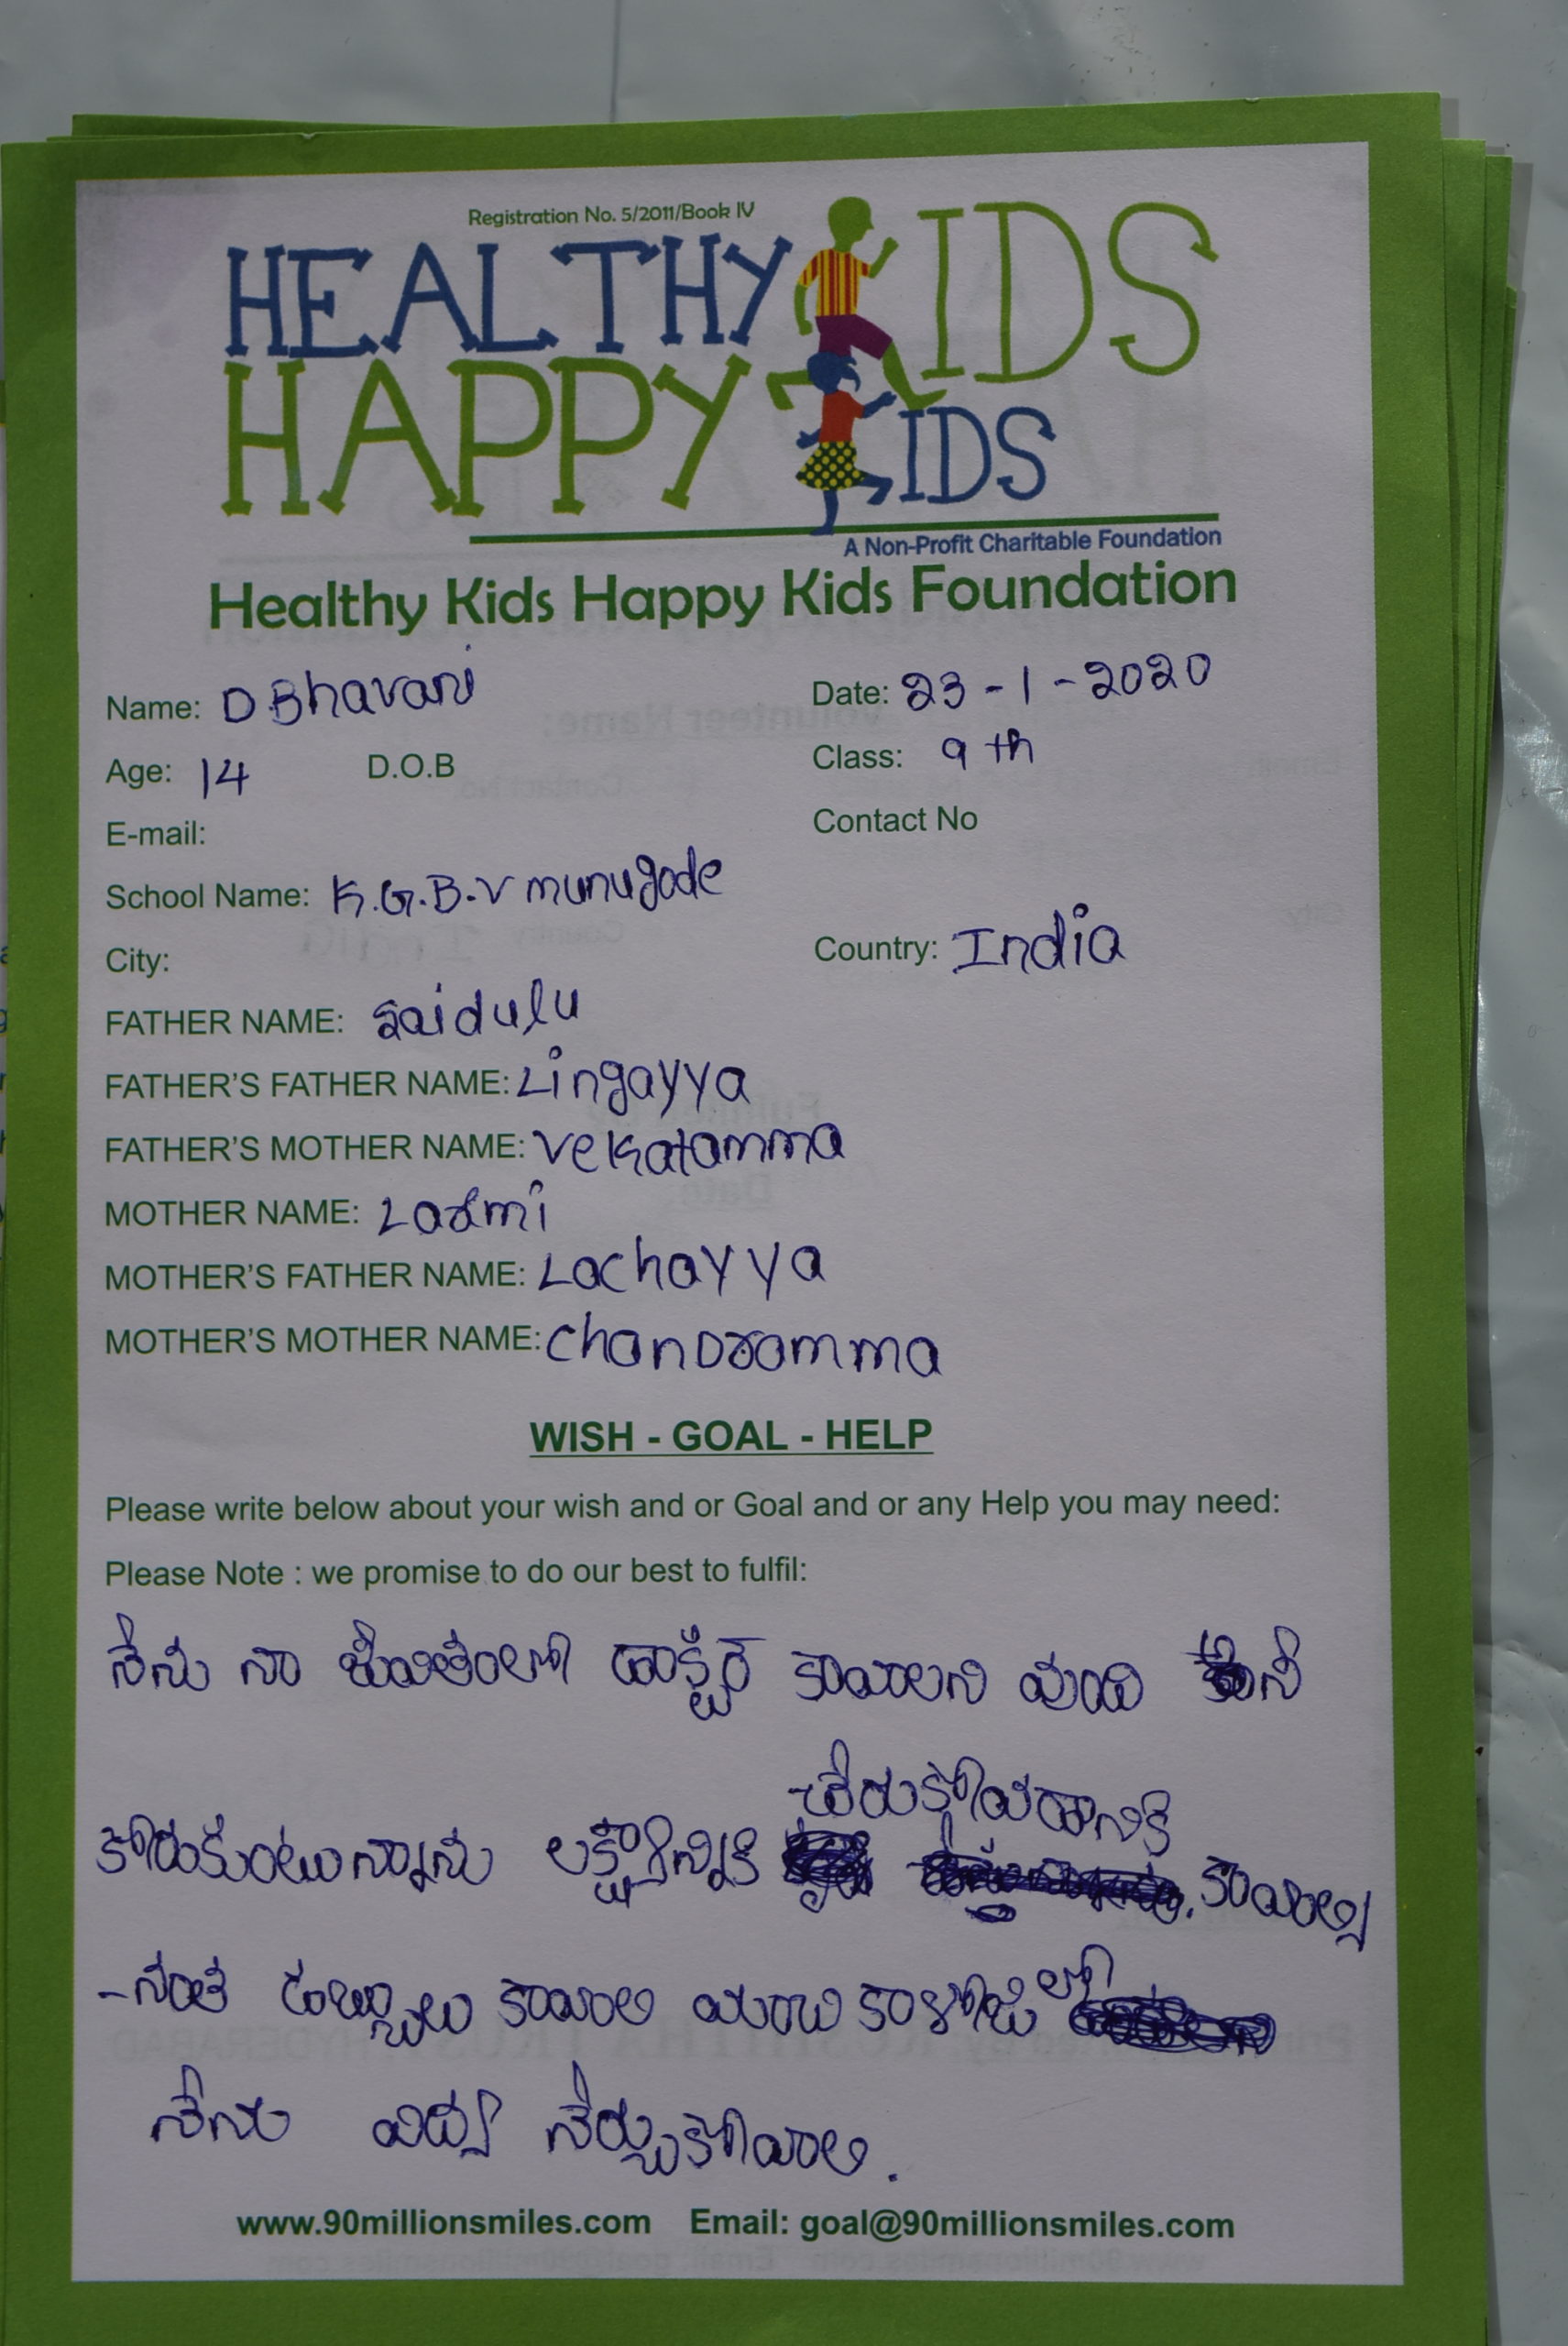 Registration No. 5/2011/Book IV
HEALTHY KIDS
HAPPY KIDS
A Non-Profit Charitable Foundation
Healthy Kids Happy Kids Foundation
Name: D.Bhavani Date: 23-1-2020
Age: 14 D.O.B Class: 9th
E-mail: Contact No
School Name: K.G.B.V munugode
City: Country: India
FATHER NAME: Saidulu
FATHER'S FATHER NAME: Lingayya
FATHER'S MOTHER NAME: Vekatamma
MOTHER NAME: Laxmi
MOTHER'S FATHER NAME: Lachayya
MOTHER'S MOTHER NAME: Chandramma
WISH - GOAL - HELP
Please write below about your wish and or Goal and or any Help you may need:
Please Note : we promise to do our best to fulfil:
నేను నా జీవితంలో డాక్టర్ కావాలని వుంది
చేరుకోవడానికి
కోరుకుంటున్నాను కావాల్సి
-నంత డబ్బులు కావాలి మంచి కాళేజి లో
నేను విద్య నేర్చుకోవాలి.
www.90millionsmiles.com Email: goal@90millionsmiles.com